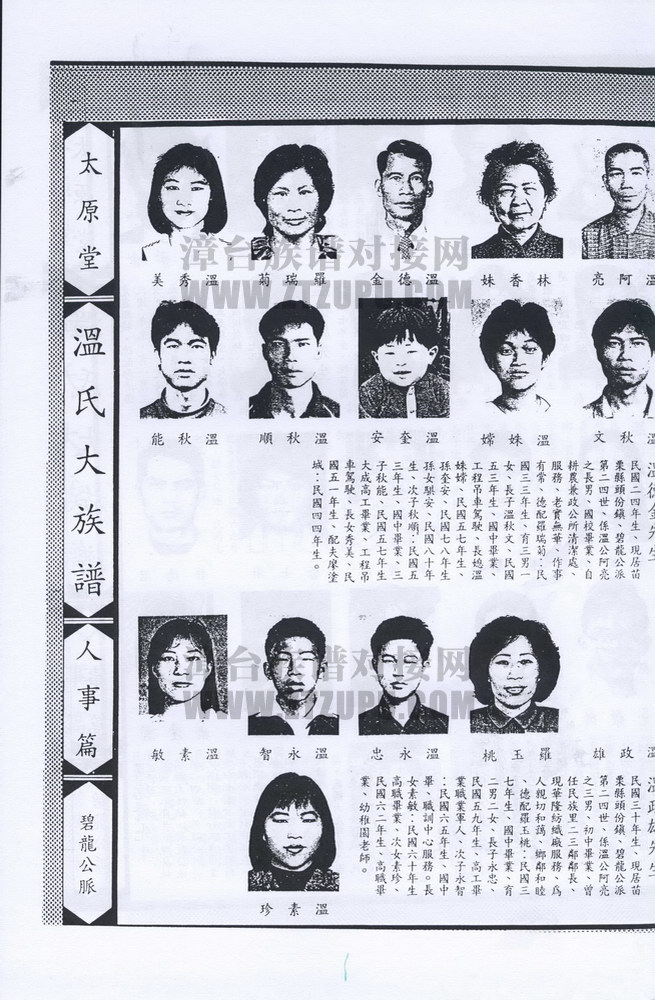 太原堂
溫氏大族譜
人事篇
碧龍公脈
溫阿亮
林香妹
溫德金
羅瑞菊
溫秀美
溫秋文
溫姝嫦
溫奎安
溫秋順
溫秋能
溫德金先生
民國二四年生、現居苗
栗縣頭份鎮、碧龍公派
第二四世、係溫公阿亮
之長男、國校畢業、自
耕農兼政公所清潔處、
服務、老實無華、作事
有常、德配羅瑞菊：民
國三三年生、育三男一
女、長子溫秋文、民國
五三年生、國中畢業、
工程吊車駕駛、長媳溫
姝嫦、民國五七年生、
孫奎安、民國七八年生
孫女騏安、民國八十年
生、次子秋順：民國五
三年生、國中畢業、三
子秋能、民國五七年生
大成高工畢業、工程吊
車駕駛、長女秀美、民
國五一年生、配夫廖塗
城：民國四四年生。
溫政雄
羅玉桃
溫永忠
溫永智
溫素敏
溫政雄先生
民國三十年生、現居苗
栗縣頭份鎮、碧龍公派
第二四世、係溫公阿亮
之三男、初中畢業、曾
任民族里二三鄰鄰長、
現華隆紡織廠服務、為
人親切和藹、鄉鄰和睦
、德配羅玉桃：民國三
七年生、國中畢業、育
二男二女、長子永忠、
民國五九年生、高工畢
業職業軍人、次子永智
：民國六五年生、國中
畢、職訓中心服務。長
女素敏：民國六十年生
高職畢業、次女素珍、
民國六二年生、高職畢
業、幼稚園老師。
溫素珍
漳台族谱对接网
WWW.ZTZUPU.COM
漳台族谱对接网
WWW.ZTZUPU.COM